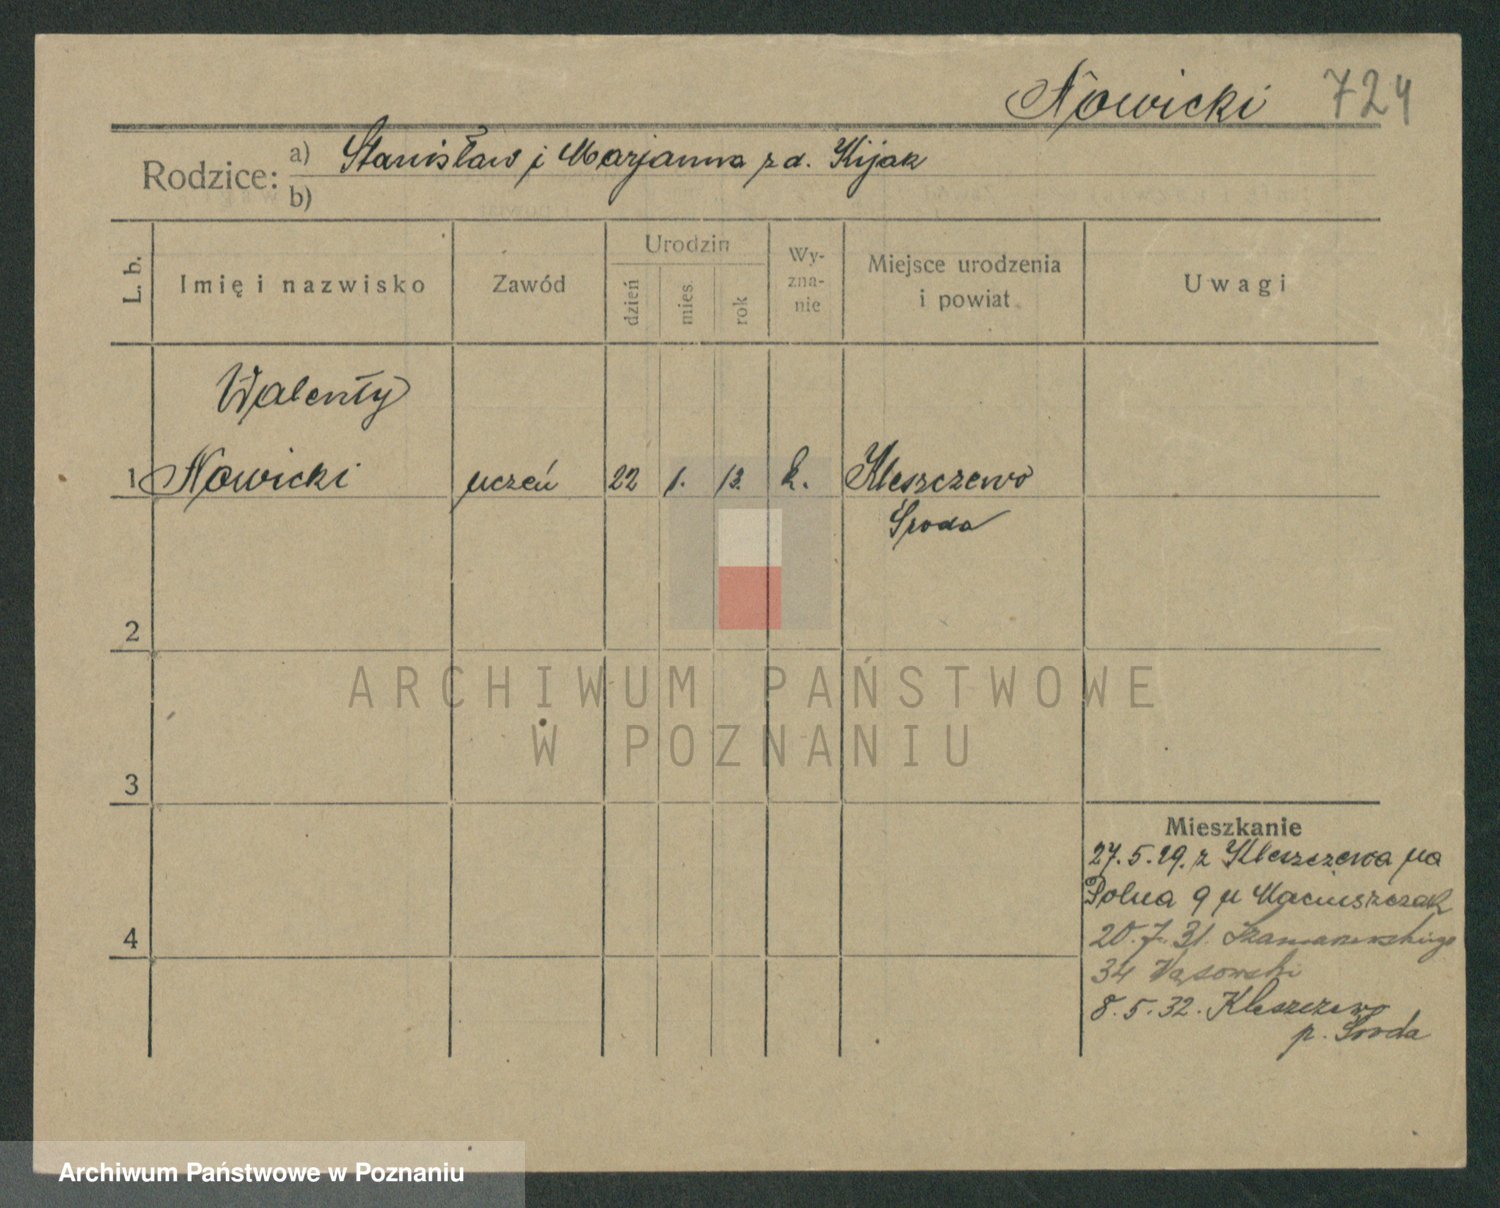 Nowicki 724
Rodzice: a) Stanisław i Marjanna z d. Kijak
b)
L. b.
Imię i nazwisko
Zawód
Urodzin
dzień
mies.
rok
Wy-
zna-
nie
Miejsce urodzenia
i powiat
Uwagi
Walenty
1 Nowicki uczeń 22 1. 13. k. Kleszczewo
Środa
2
3
4
ARCHIWUM PAŃSTWOWE
W POZNANIU
Mieszkanie
27.5.29. z Kleszczewa na
Polna 9 u Maciuszczak
20.7.31. Szamarzewskiego
34 Wąsowski
8.5.32. Kleszczewo
p. Środa
Archiwum Państwowe w Poznaniu